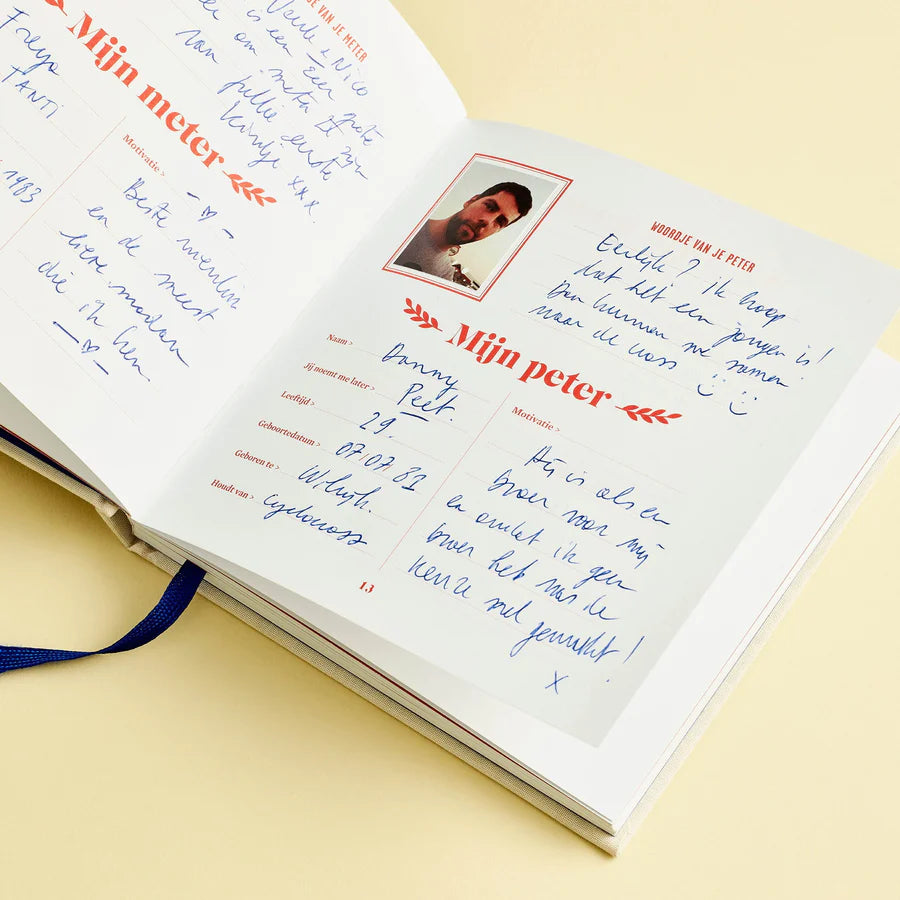 JE VAN JE METER
& Nico
is een Eer
om meter te zijn
van jullie eerste
kindje xxx.
Mijn meter
Freya
TANTI
1983
Motivatie >
Beste vriendin
en de meest
lieve madam
die ik ken
WOORDJE VAN JE PETER
Eerlijk? ik hoop
dat het een jongen is!
Dan kunnen we samen
naar de cross
Mijn peter
Naam > Danny
Jij noemt me later > Peet.
Leeftijd > 29.
Geboortedatum > 07/07 81
Geboren te > Wilrijk.
Houdt van > cyclocross
Motivatie >
Hij is als een
broer voor mij
en omdat ik geen
broer heb was de
keuze snel gemaakt!
X
13